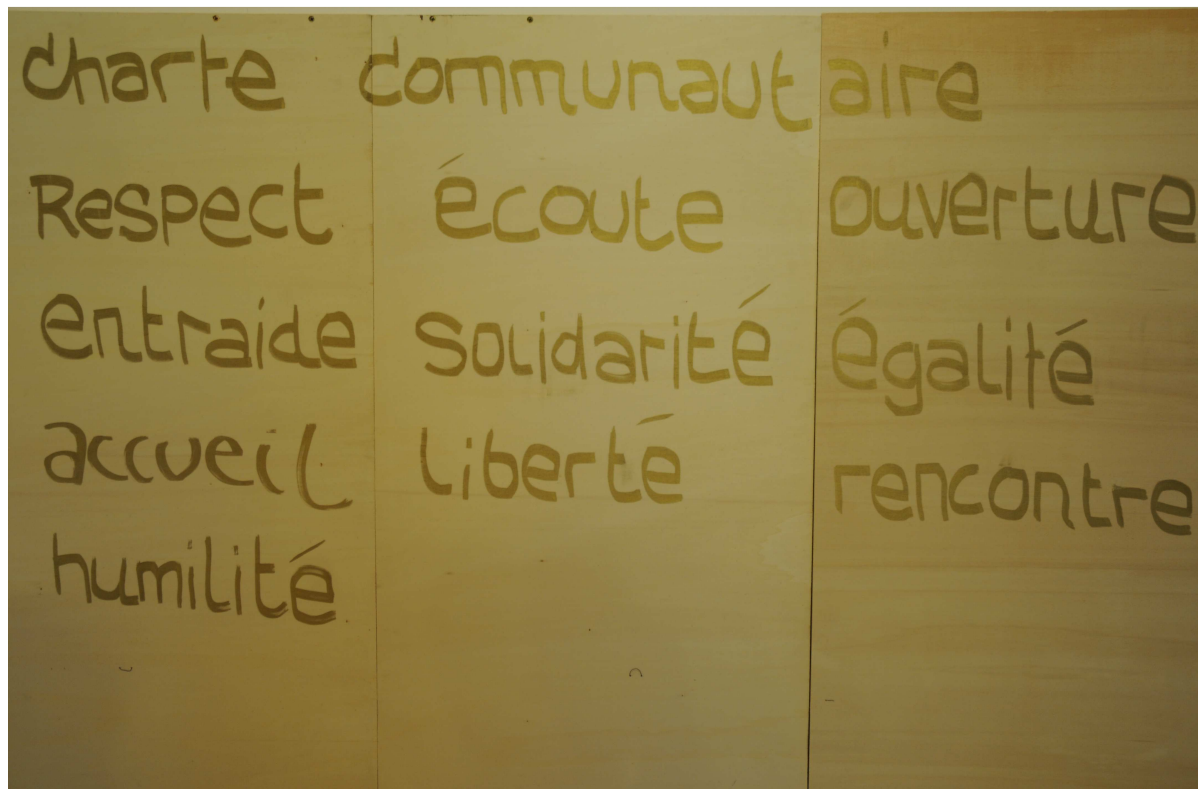 charte communautaire
Respect écoute ouverture
entraide solidarité égalité
accueil liberté rencontre
humilité